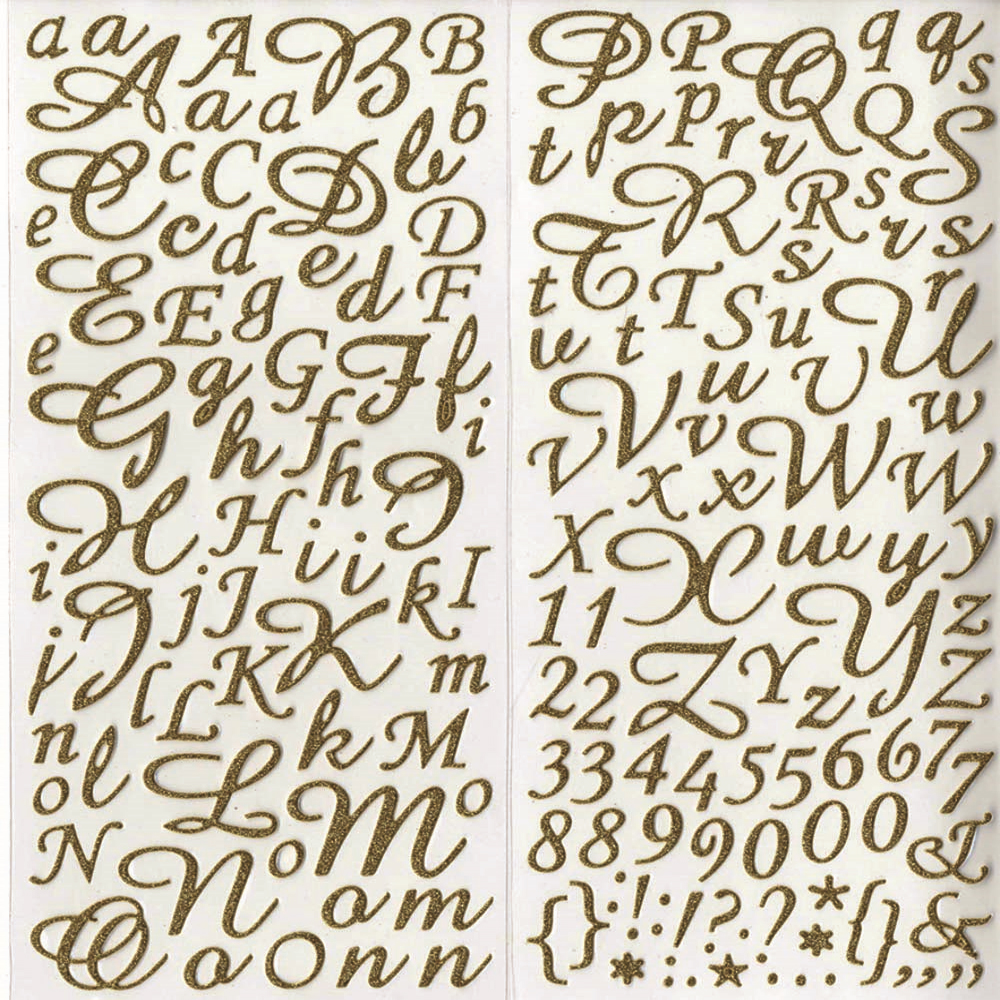 a a A A B B
a a b
C c C D b
e c d e d D
E E g F
e G g G F f
h f h i
H H I
i i i k I
j J j J K
l L K m
n l k M
o L M o
N N o
o m
O o O n n
P P Q q q s
t p p r r Q S
R R s r s
T s
t T S u U r
u t u U
V v w
v x x W W
X X w y y
1 1 Y z
2 2 Z Y z Z
3 3 4 4 5 5 6 6 7 7
8 8 9 9 0 0 0 &
{ } : ! : ! ? ? * { } &
* * * , , , ,